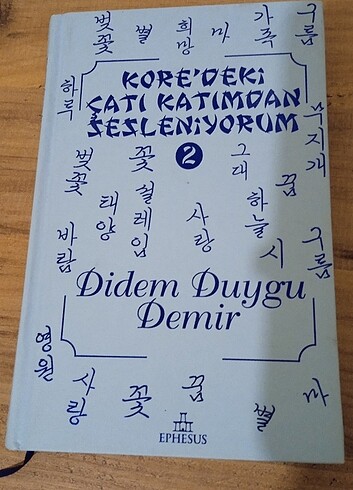 벚꽃 별 희망 마 가족 구름
하루
KORE'DEKİ
ÇATI KATIMDAN
SESLENİYORUM
2
무지개
벚꽃 꽃 그대 꿈
태양 설레임 사랑 하늘
바람 시 구름
Didem Duygu
Demir
영원
사랑 꽃 꿈 별 마
EPHESUS